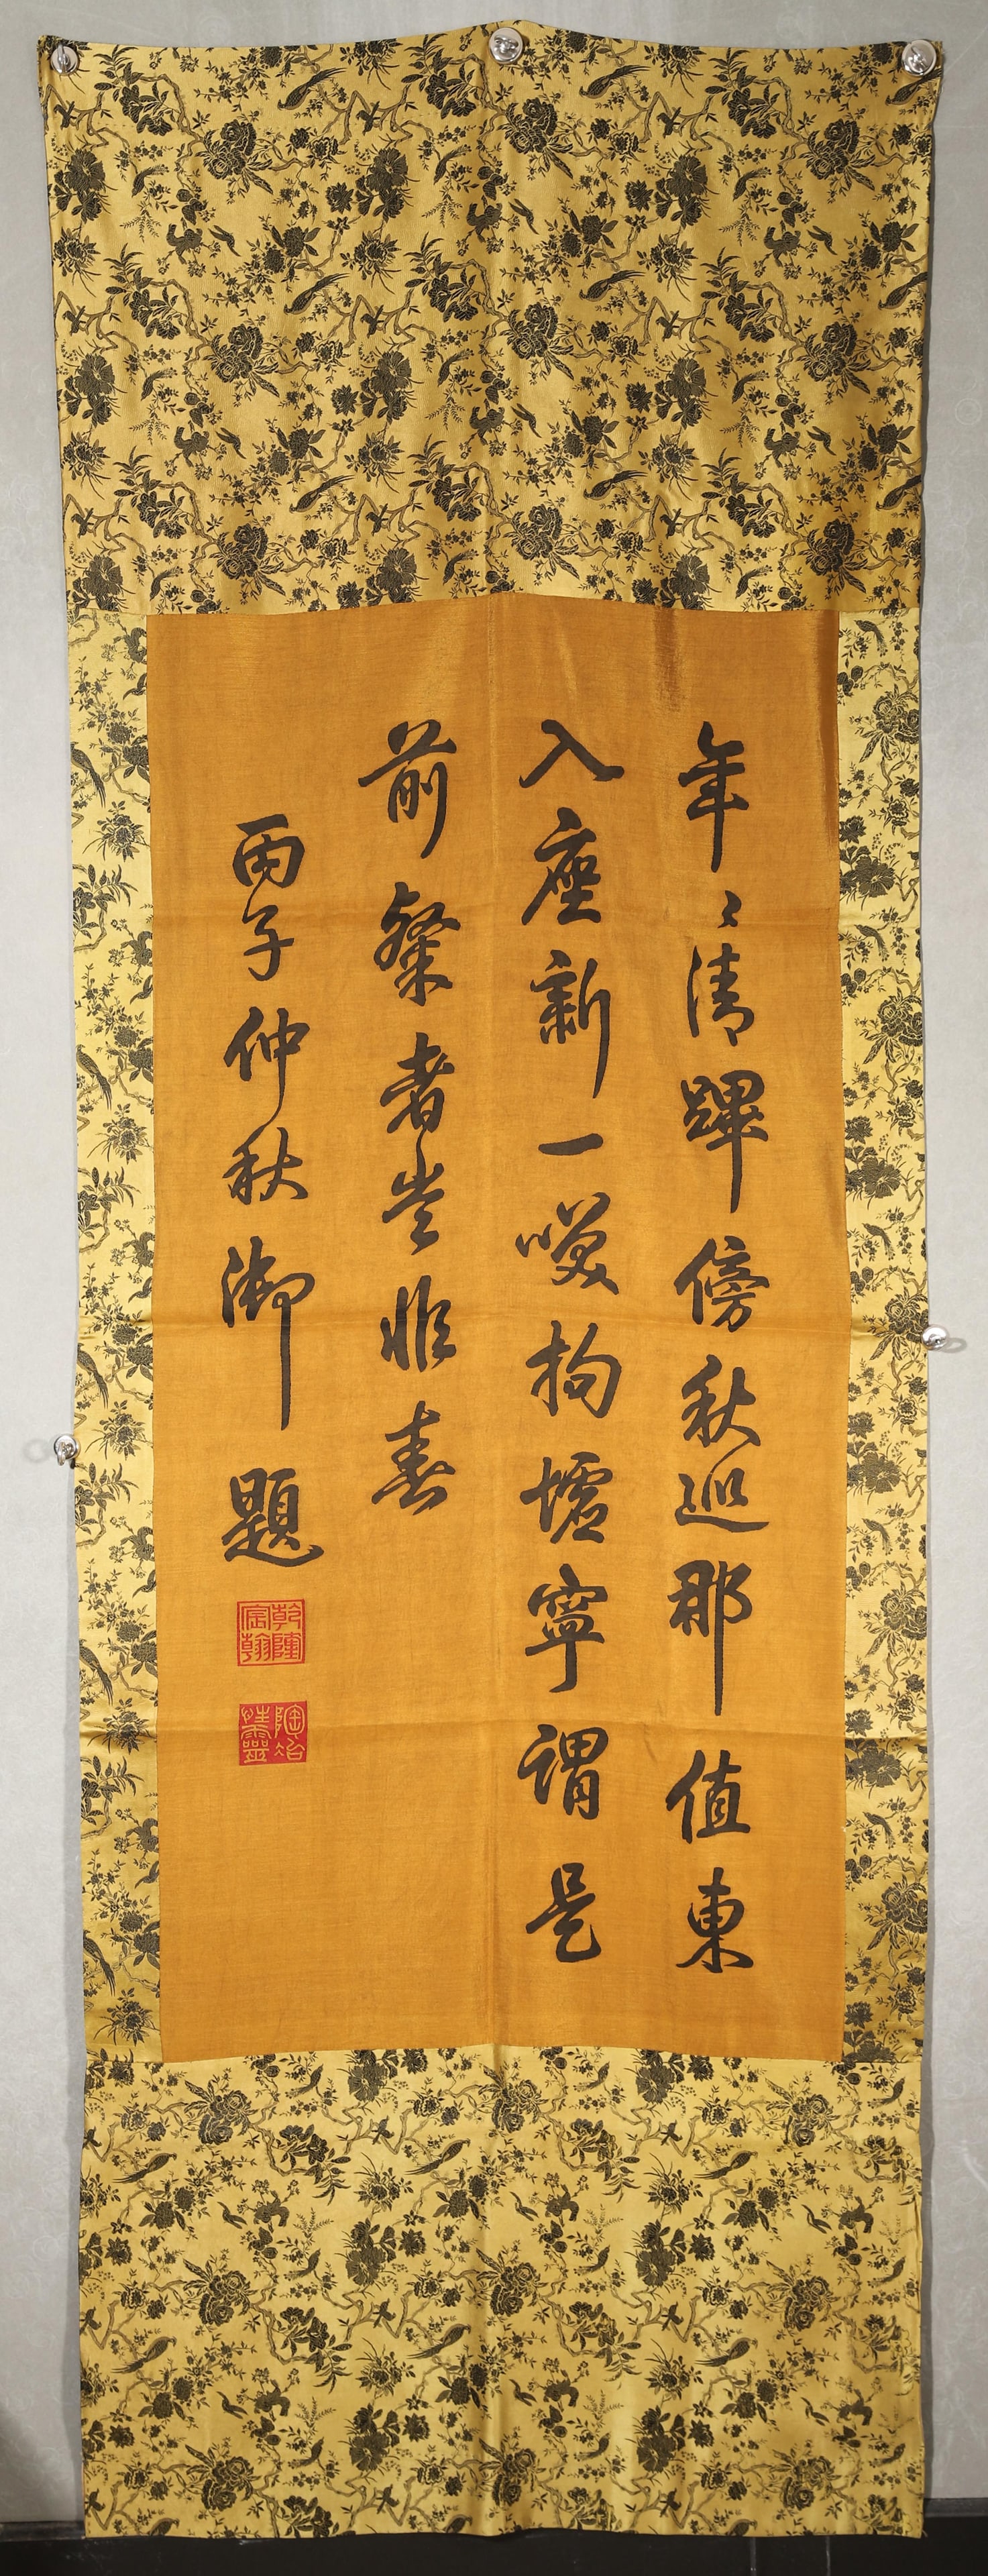 年〻清蹕傍秋巡那值東
入座新一噗拘墟寧謂是
前粲者豈非春
丙子仲秋御題
乾隆宸翰
陶冶性靈